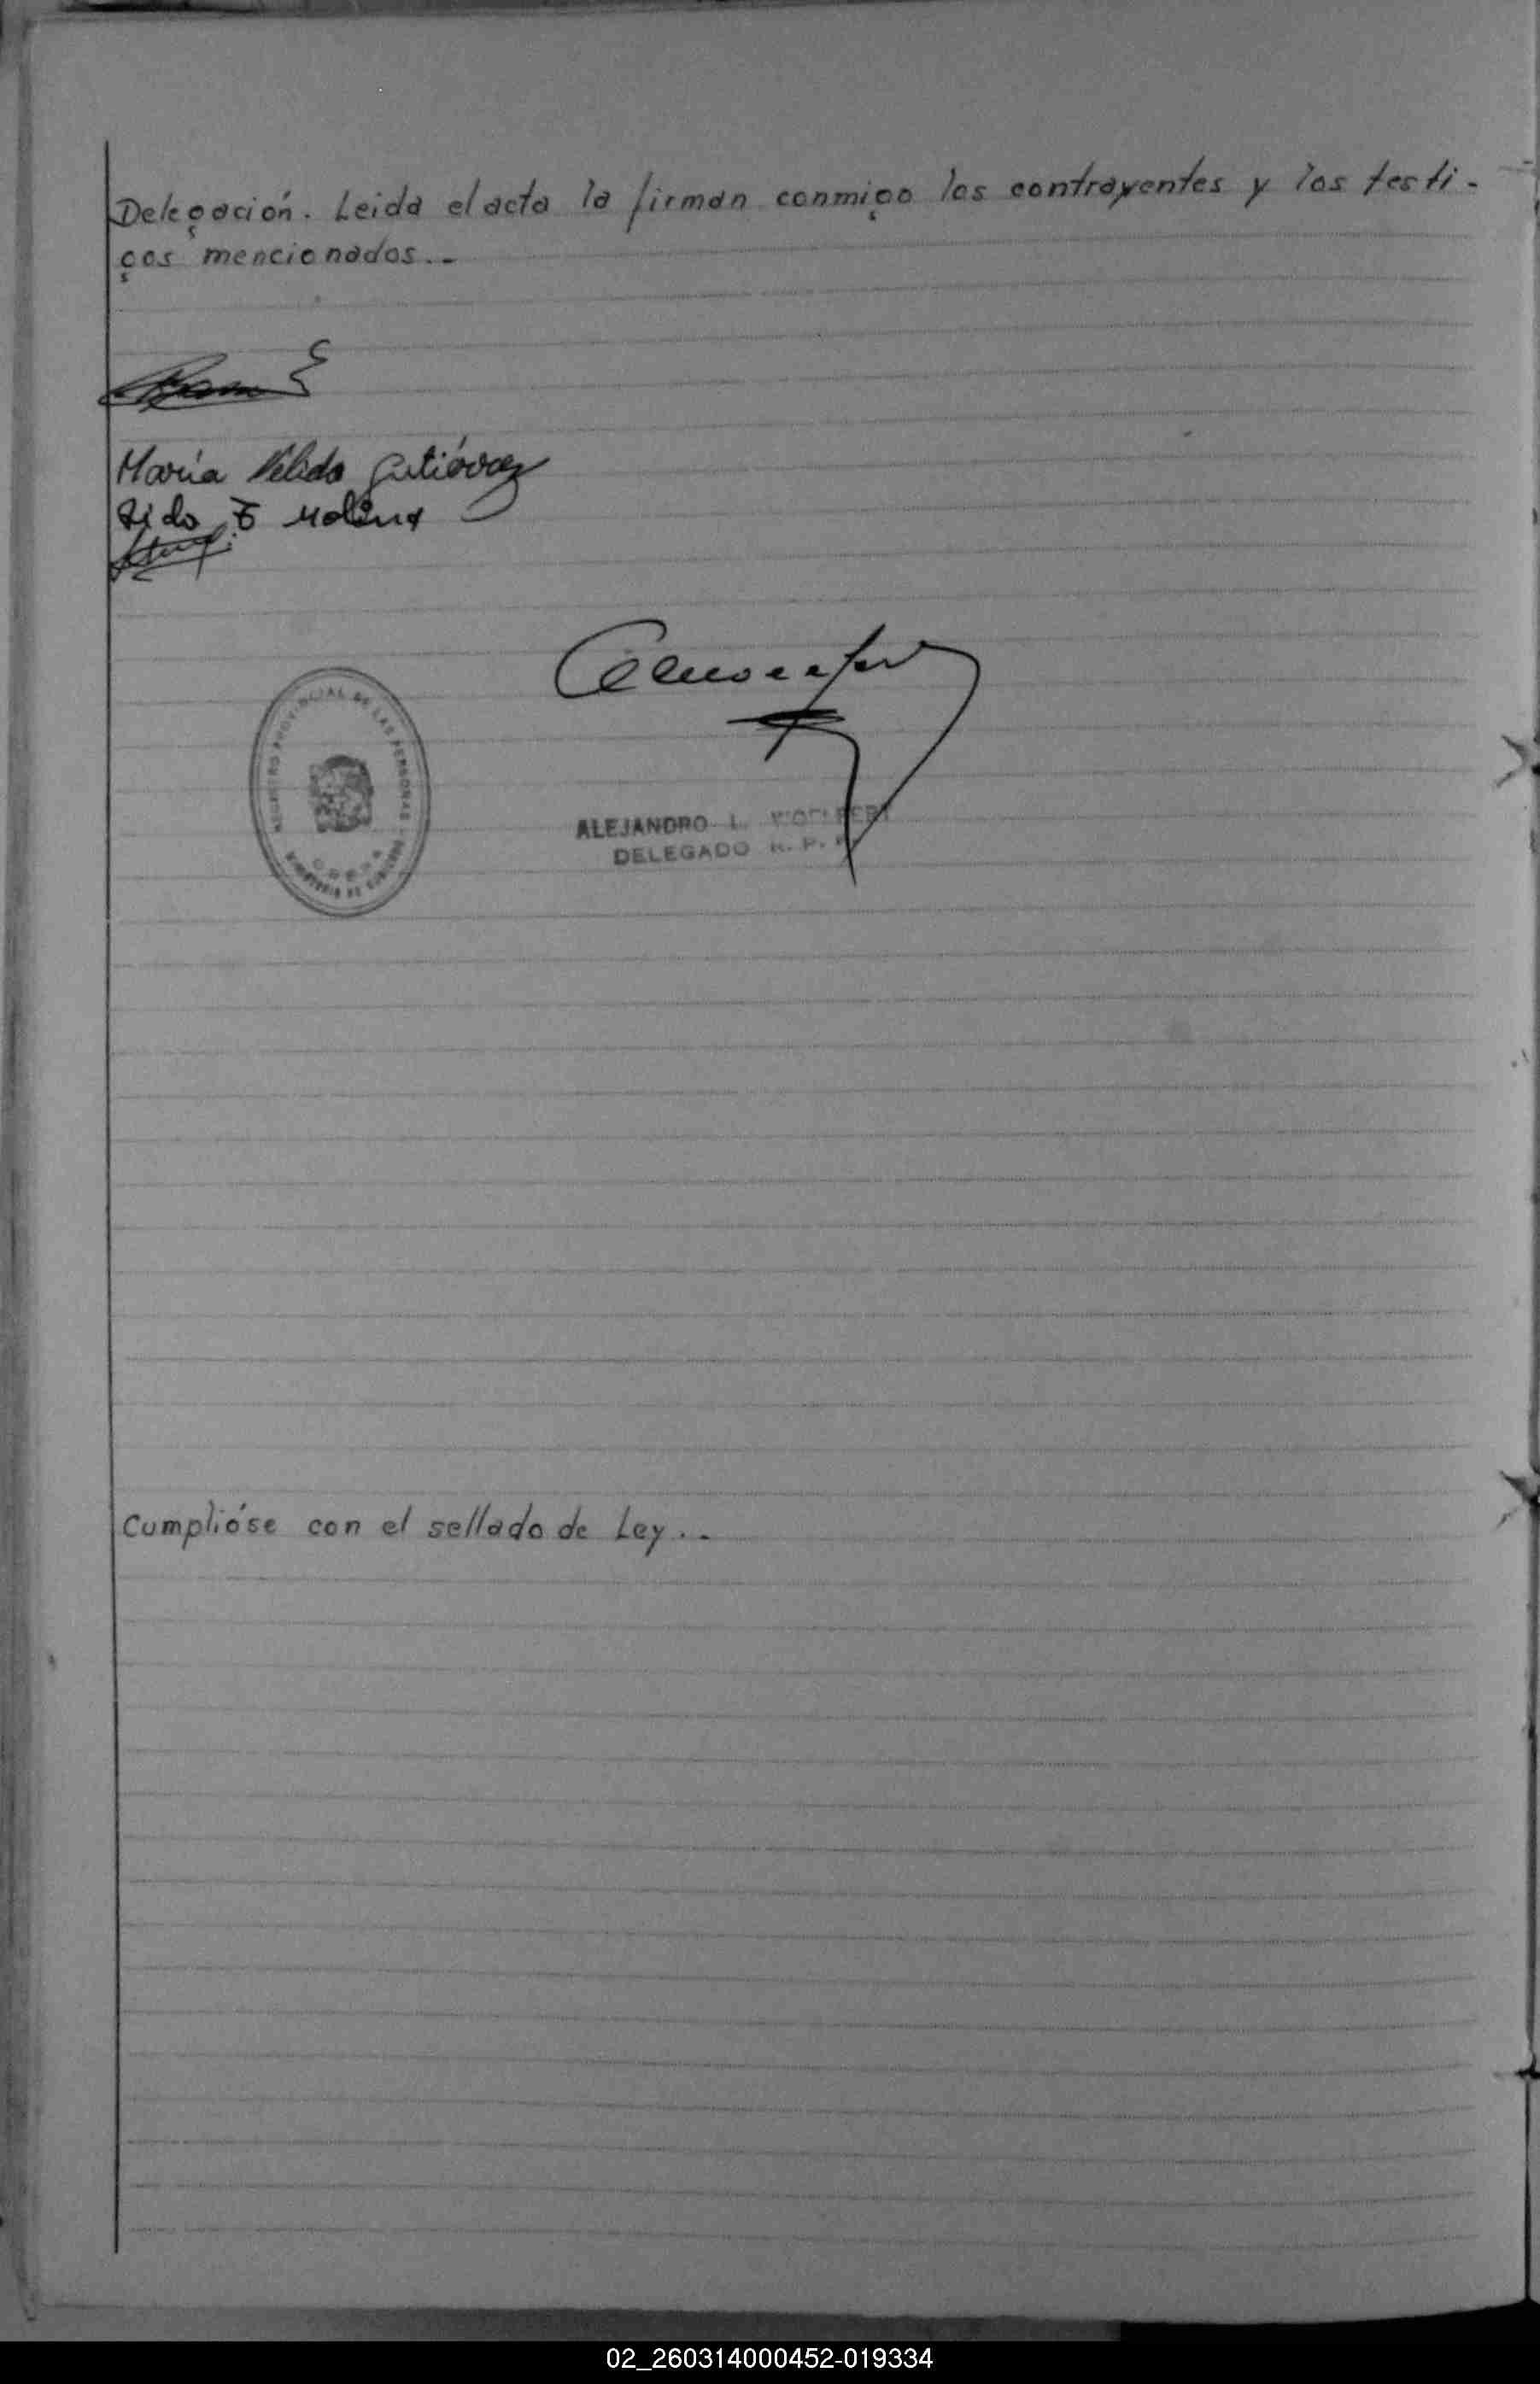 Delegación. Leida el acta la firman conmigo los contrayentes y los testi-
gos mencionados.-
María Nélida Gutiérrez
Molina
REGISTRO PROVINCIAL DE LAS PERSONAS
MINISTERIO DE GOBIERNO
ALEJANDRO L.
DELEGADO R. P.
Cumplióse con el sellado de Ley.-
02_260314000452-019334